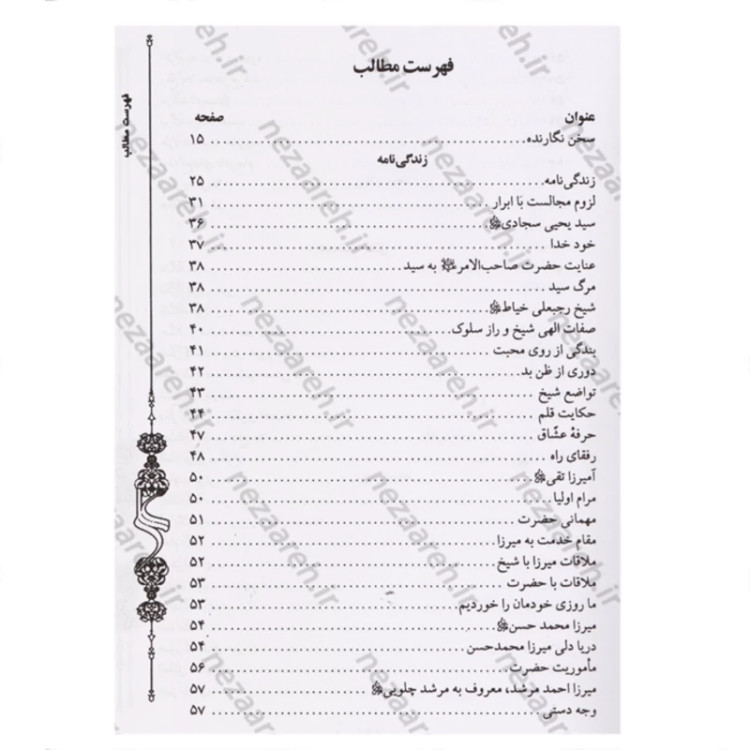 فهرست مطالب
فهرست مطالب
عنوان صفحه
سخن نگارنده ۱۵
زندگی‌نامه
زندگی‌نامه ۲۵
لزوم مجالست با ابرار ۳۱
سید یحیی سجادی ۳۶
خود خدا ۳۷
عنایت حضرت صاحب‌الامر به سید ۳۸
مرگ سید ۳۸
شیخ رجبعلی خیاط ۳۸
صفات الهی شیخ و راز سلوک ۴۰
بندگی از روی محبت ۴۱
دوری از ظن بد ۴۲
تواضع شیخ ۴۳
حکایت قلم ۴۴
حرفۀ عشّاق ۴۷
رفقای راه ۴۸
آمیرزا تقی ۵۰
مرام اولیا ۵۰
مهمانی حضرت ۵۱
مقام خدمت به میرزا ۵۲
ملاقات میرزا با شیخ ۵۲
ملاقات با حضرت ۵۳
ما روزی خودمان را خوردیم ۵۳
میرزا محمد حسن ۵۴
دریا دلی میرزا محمدحسن ۵۴
مأموریت حضرت ۵۶
میرزا احمد مرشد، معروف به مرشد چلویی ۵۷
وجه دستی ۵۷
nezaareh.ir